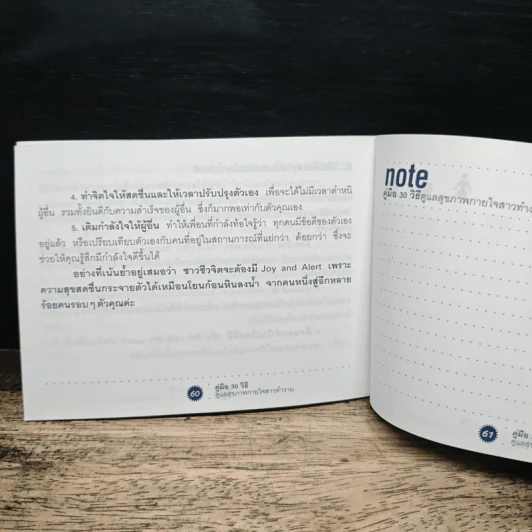 4. ทำจิตใจให้สดชื่นและให้เวลาปรับปรุงตัวเอง เพื่อจะได้ไม่มีเวลาตำหนิ
ผู้อื่น รวมทั้งยินดีกับความสำเร็จของผู้อื่น ซึ่งก็มากพอเท่ากับตัวคุณเอง
5. เติมกำลังใจให้ผู้อื่น ทำให้เพื่อนที่กำลังท้อใจรู้ว่า ทุกคนมีข้อดีของตัวเอง
อยู่แล้ว หรือเปรียบเทียบตัวเองกับคนที่อยู่ในสถานการณ์ที่แย่กว่า ด้อยกว่า ซึ่งจะ
ช่วยให้คุณรู้สึกมีกำลังใจดีขึ้นได้
อย่างที่เน้นย้ำอยู่เสมอว่า ชาวชีวจิตจะต้องมี Joy and Alert เพราะ
ความสุขสดชื่นกระจายตัวได้เหมือนโยนก้อนหินลงน้ำ จากคนหนึ่งสู่อีกหลาย
ร้อยคนรอบๆ ตัวคุณค่ะ
60
คู่มือ 30 วิธี
ดูแลสุขภาพกายใจสาวทำงาน
note
คู่มือ 30 วิธีดูแลสุขภาพกายใจสาวทำงาน
61
คู่มือ